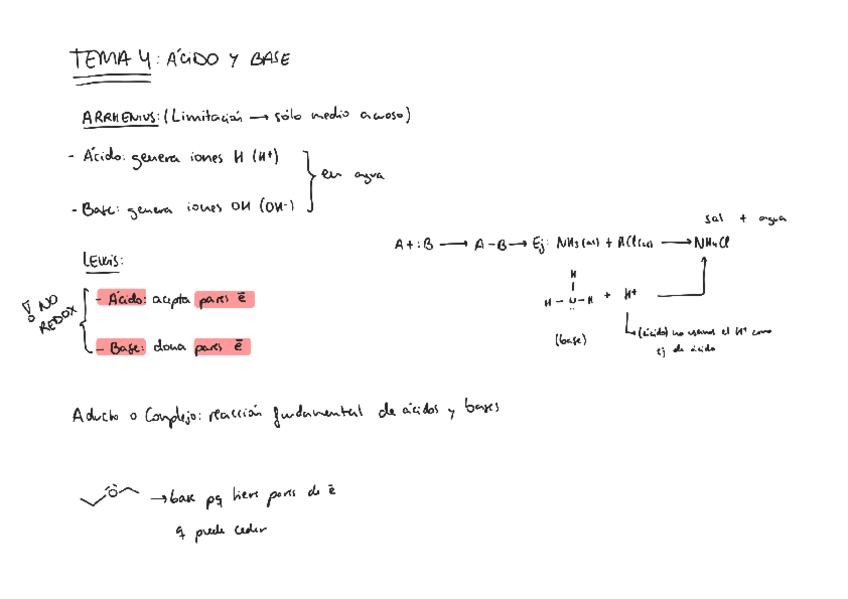 TEMA 4: ÁCIDO Y BASE
ARRHENIUS: (Limitación → sólo medio acuoso)
- Ácido: genera iones H (H+)
- Base: genera iones OH (OH-)
en agua
sal + agua
A + :B → A-B → Ej: NH3(ac) + HCl(ac) → NH4Cl
LEWIS:
¡NO REDOX
- Ácido: acepta pares ē
- Base: dona pares ē
H
H - N - H + H+
(base)
(ácido) no usamos el H+ como
ej de ácido
Aducto o Complejo: reacción fundamental de ácidos y bases
O → base pq tiene pares de ē
q puede ceder